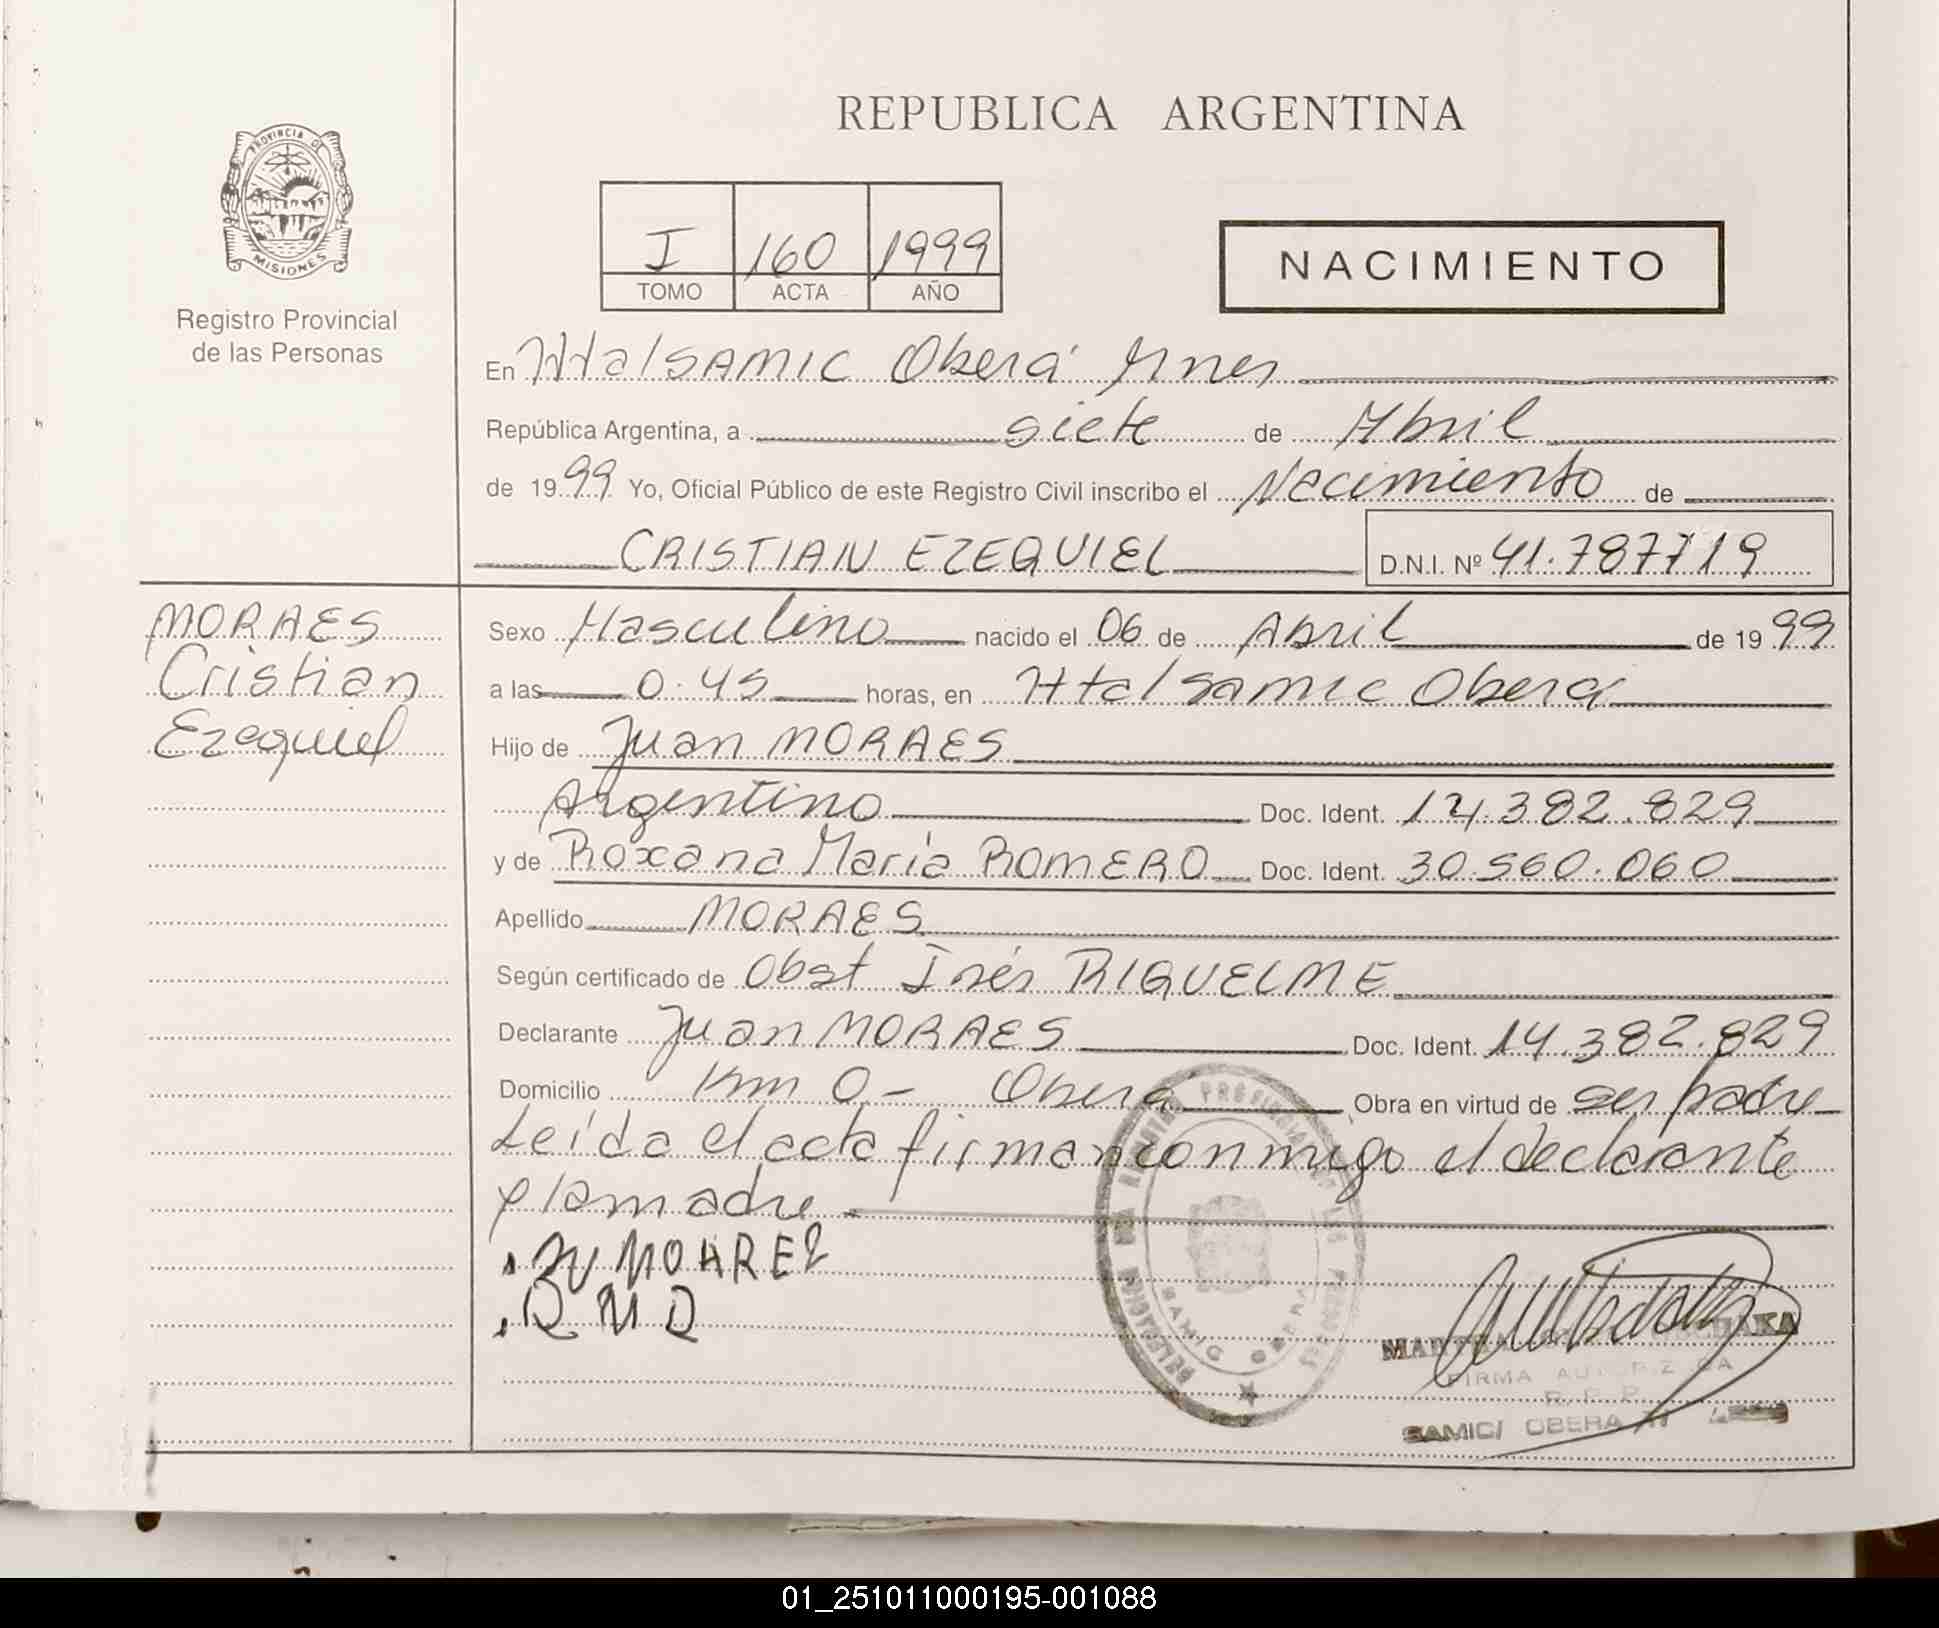 REPUBLICA ARGENTINA
PROVINCIA DE
MISIONES
Registro Provincial
de las Personas
I 160 1999
TOMO ACTA AÑO
NACIMIENTO
En Htal SAMIC Oberá Mnes
República Argentina, a siete de Abril
de 1999 Yo, Oficial Público de este Registro Civil inscribo el Nacimiento de
CRISTIAN EZEQUIEL D.N.I. Nº 41.787719
MORAES
Cristian
Ezequiel
Sexo Masculino nacido el 06 de Abril de 1999
a las 0.45 horas, en Htal Samic Oberá
Hijo de Juan MORAES
Argentino Doc. Ident. 14.382.829
y de Roxana María ROMERO Doc. Ident. 30.560.060
Apellido MORAES
Según certificado de Obst Inés RIQUELME
Declarante Juan MORAES Doc. Ident. 14.382.829
Domicilio Km 0 - Oberá Obra en virtud de ser padre
Leída el acta firman conmigo el declarante
y la madre
MOAREZ
R M R
DELEGACION REGISTRO PROVINCIAL DE LAS PERSONAS
SAMIC OBERA
FIRMA AUTORIZADA
R. P. P.
SAMIC/ OBERA
01_251011000195-001088